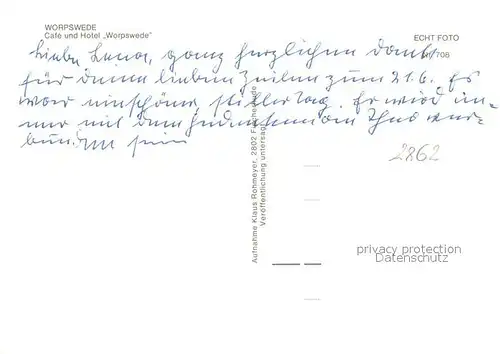 WORPSWEDE
Café und Hotel „Worpswede"
ECHT FOTO
708
Liebe Lena, ganz herzlichen Dank
für deine lieben Zeilen zum 21.6. Es
war ein schöner stiller Tag. Er wird im-
mer mit dem Gedenken an Theo ver-
bunden sein
2862
Aufnahme Klaus Rohmeyer, 2802 Fischerhude
Veröffentlichung untersagt
privacy protection
Datenschutz